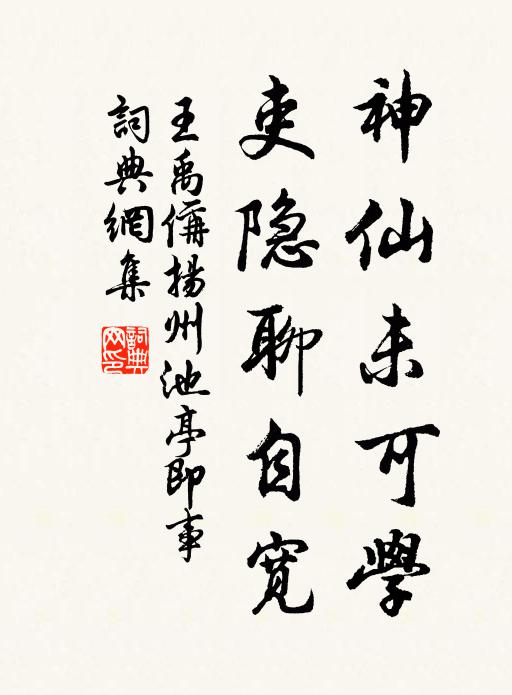 神仙未可學
吏隐聊自宽
王禹偁揚州池亭即事
詞典網集
詞典網印